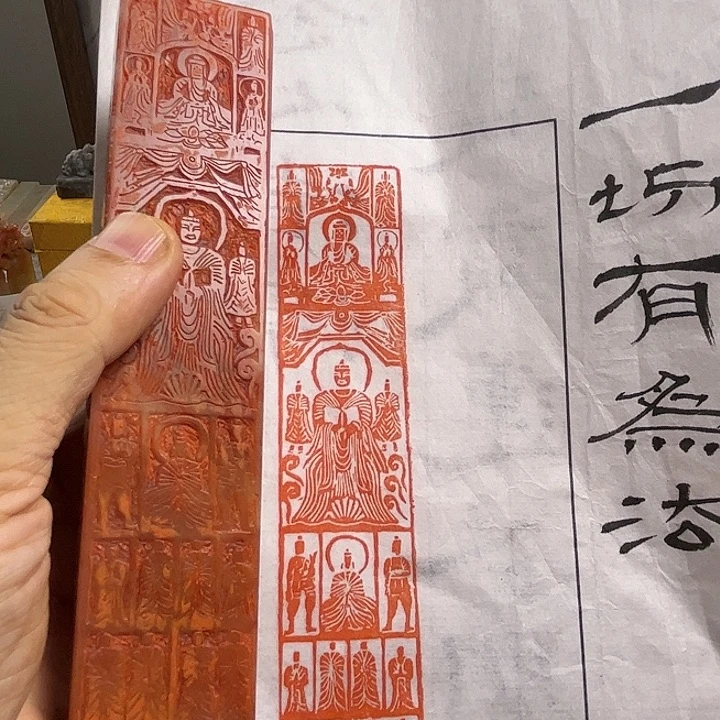 一切有為法